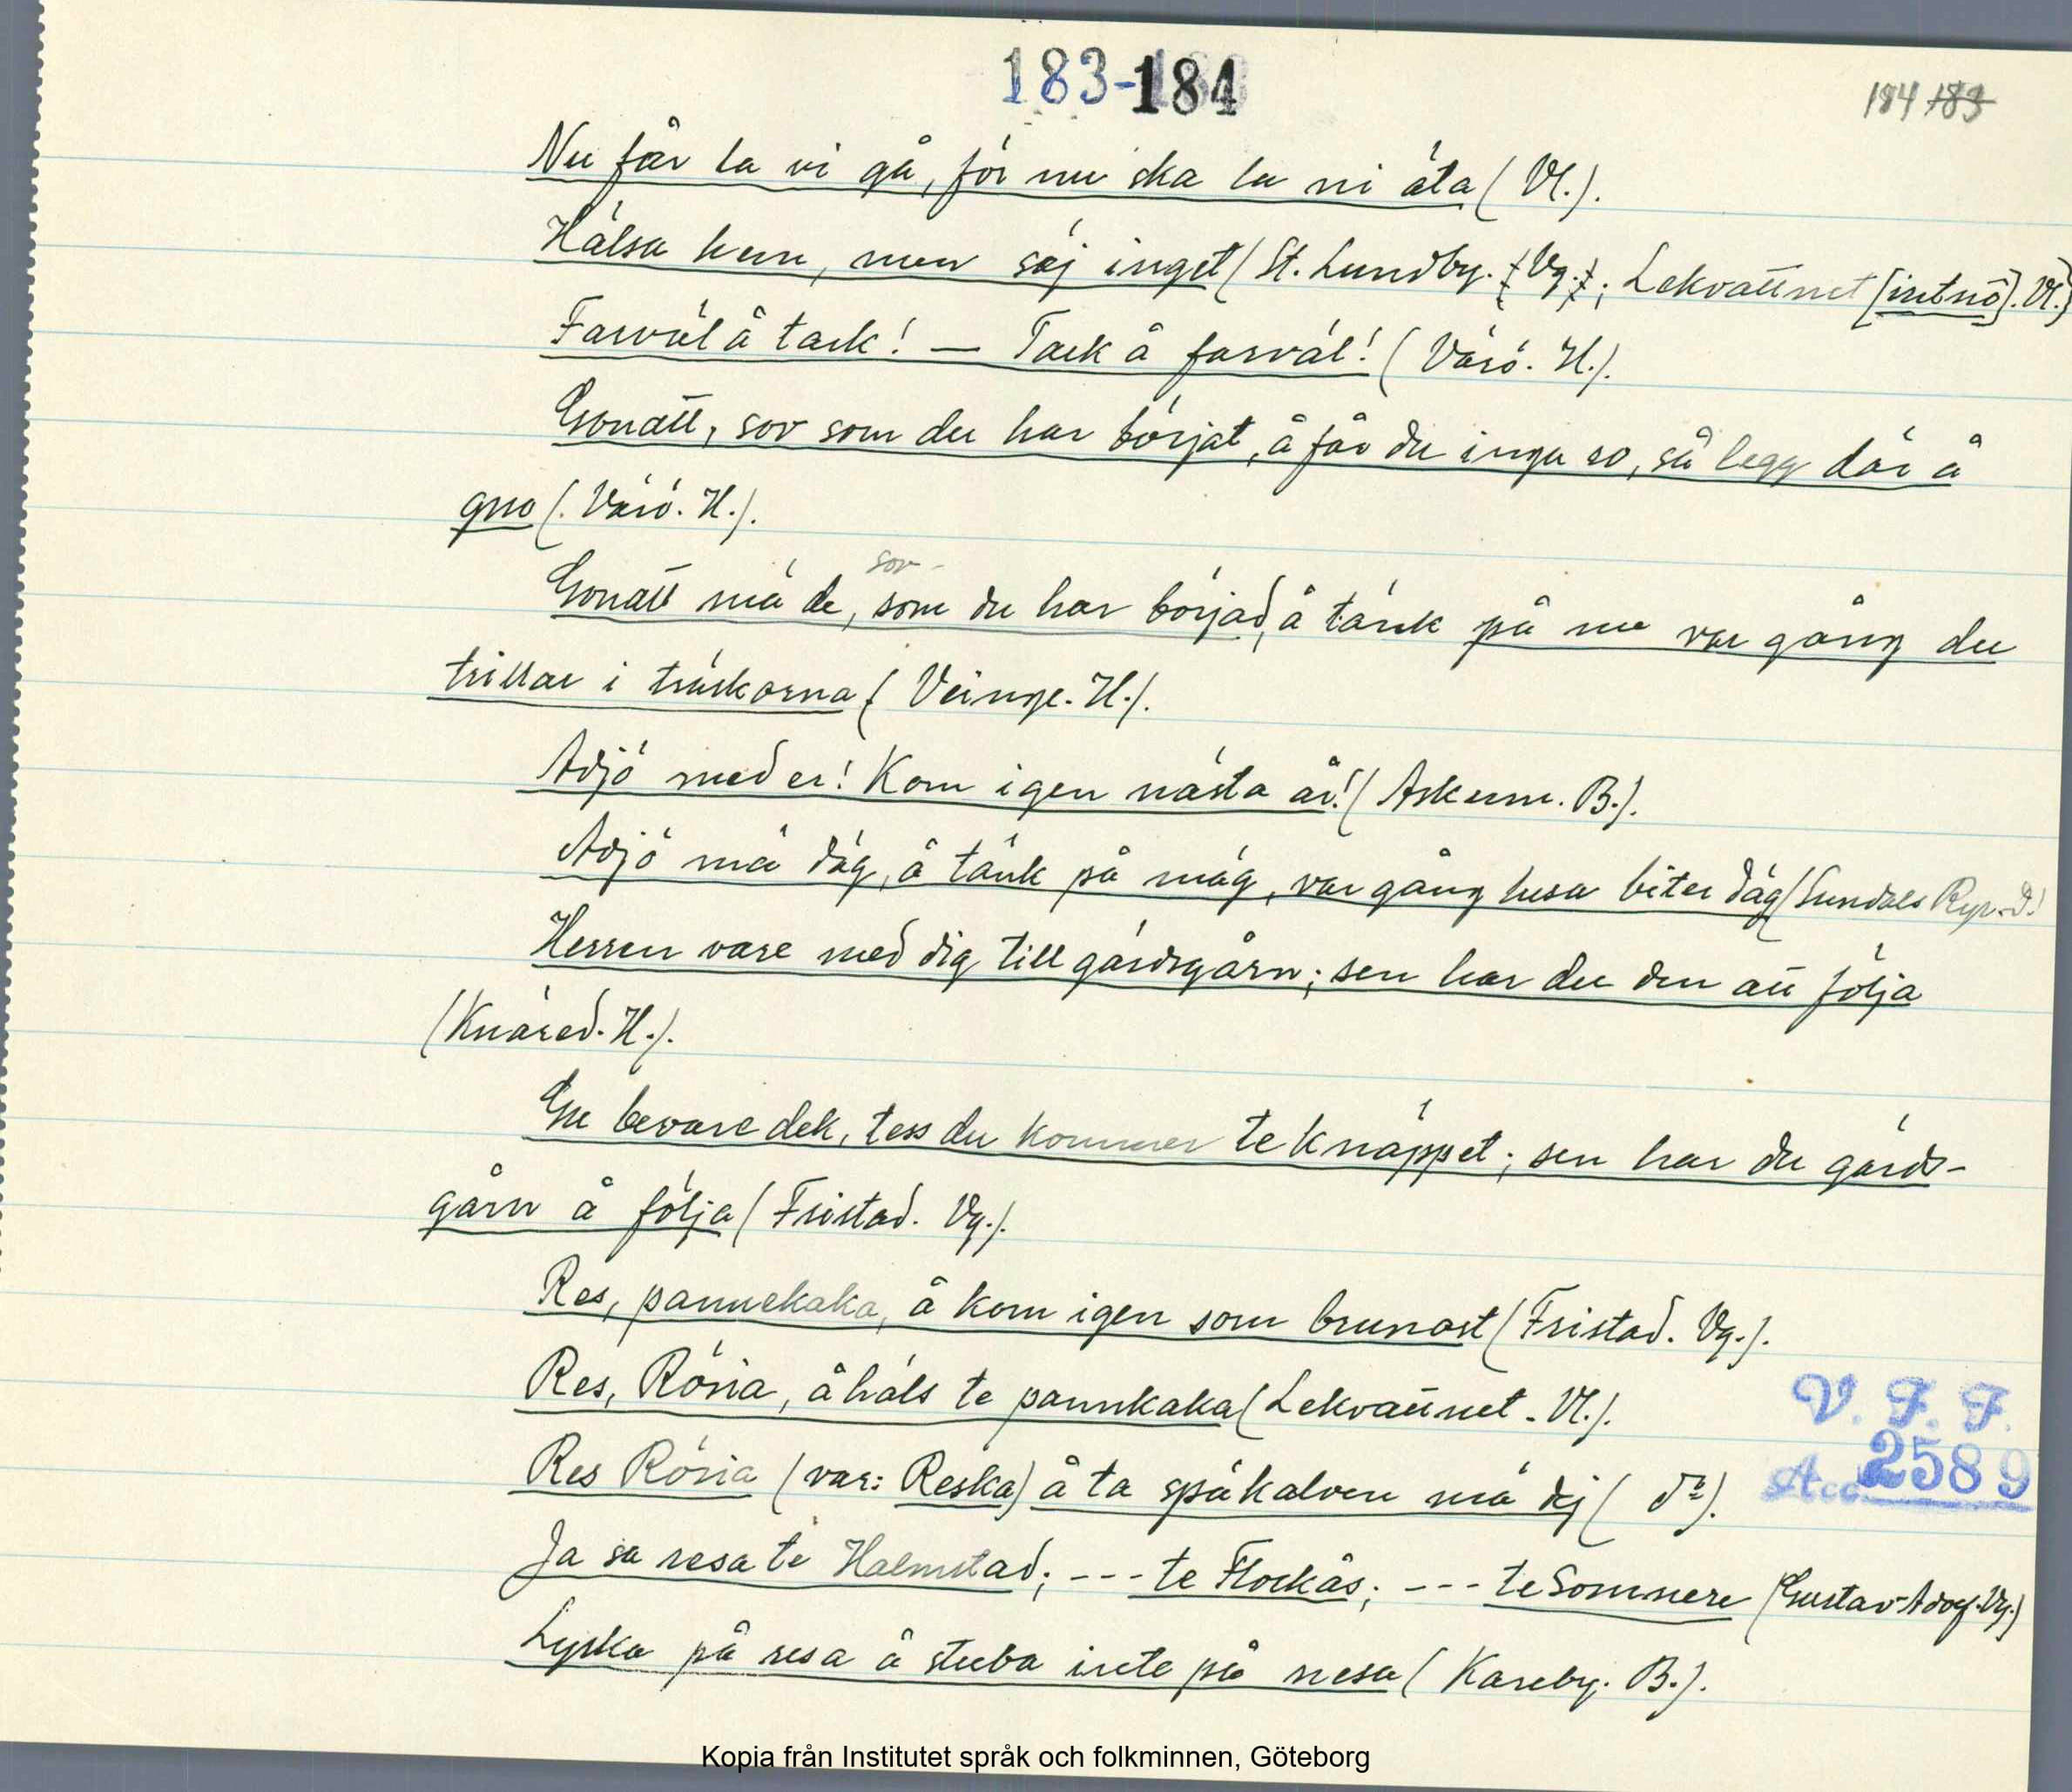 183-184
184 183
Nu får la vi gå, för nu ska la ni äta (Vl.).
Hälsa hem, men säj inget (St. Lundby. [Vg.]; Lekvattnet [intnö]. Vl.)
Farväl å tack! — Tack å farväl! (Värö. H.).
Gonatt, sov som du har börjat, å får du inga ro, så legg där å
gno (. Värö. H.).
sov-
Gonatt mä de, som du har börjad, å tänk på me var gång du
trillar i träskorna (Veinge. H.).
Adjö med er! Kom igen nästa år! (Askum. B.).
Adjö mä däg, å tänk på mäg, var gång lusa biter däg (Sundals Ryr. D.)
Herren vare med dig till gärdsgårn; sen har du den att följa
(Knäred. H.).
Gu bevare dek, tess du kommer te knäppet; sen har du gärds-
gårn å följa (Fristad. Vg.).
Res, pannekaka, å kom igen som brunost (Fristad. Vg.).
Res, Röria, å häls te pannkaka (Lekvattnet. Vl.).
V. F. F.
Res Röria (var: Reska) å ta späkalven mä dej (do).
Acc 2589
Ja sa resa te Halmstad; --- te Flockås; --- te Sommere (Gustav Adolf. Vg.)
Lycka på resa å stuba inte på nesa (Kareby. B.).
Kopia från Institutet språk och folkminnen, Göteborg